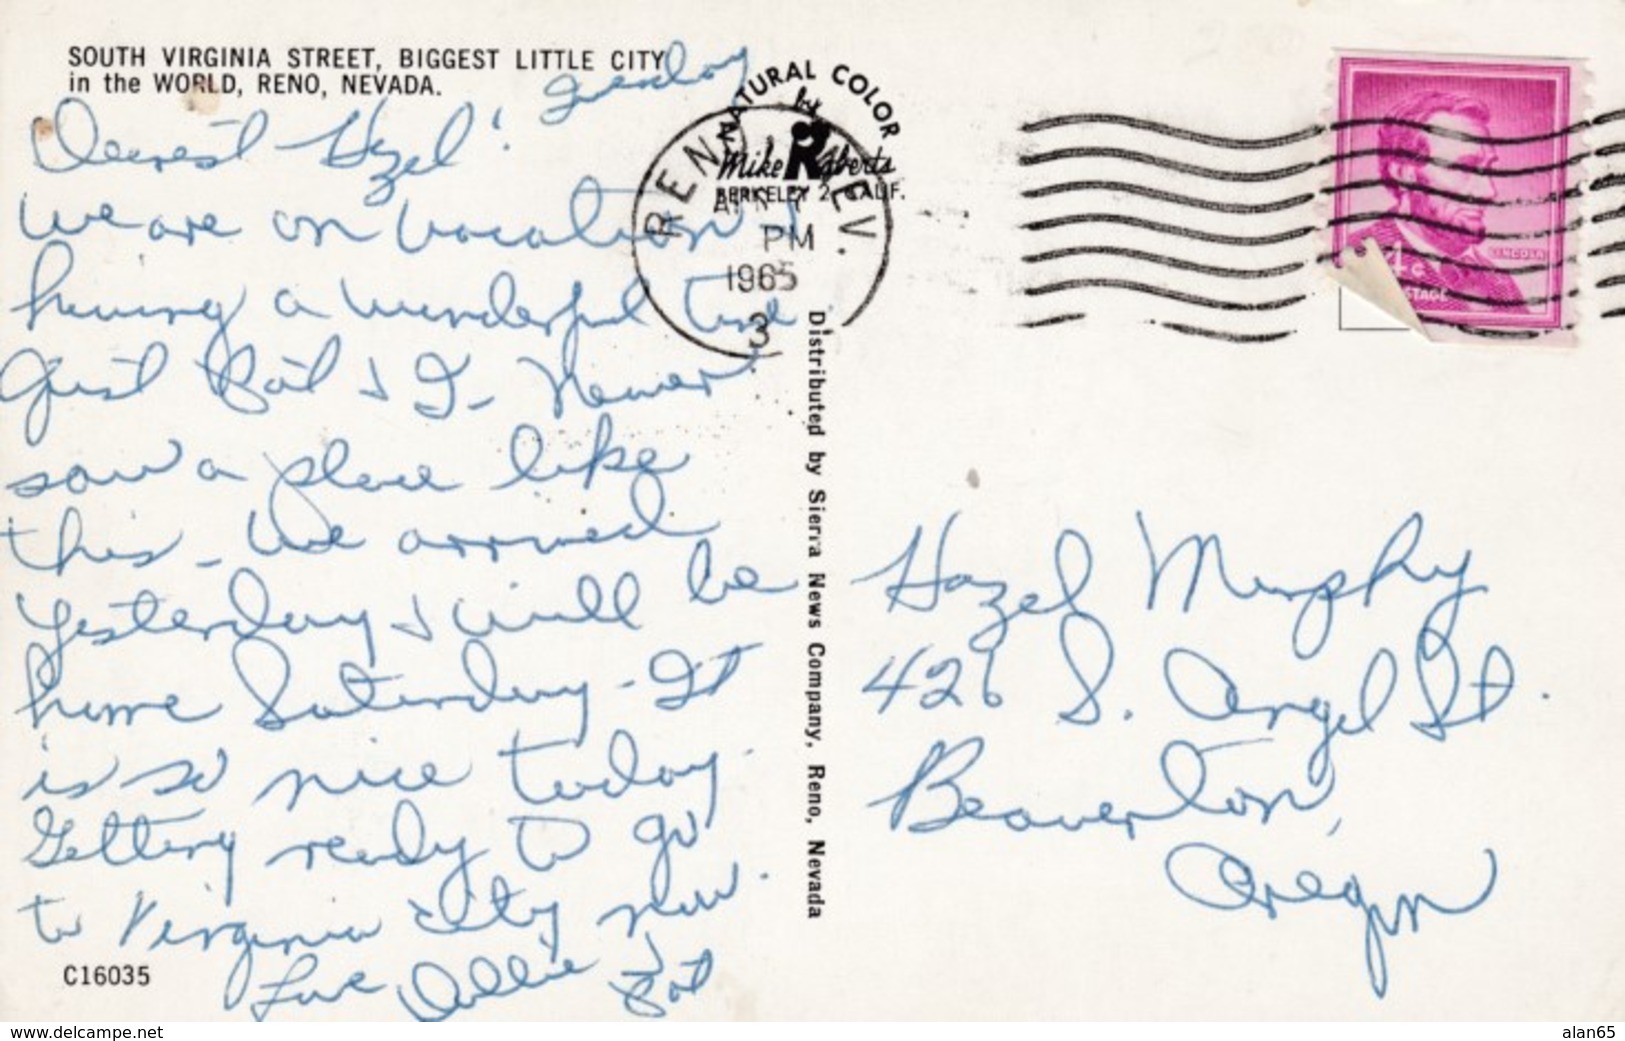 SOUTH VIRGINIA STREET, BIGGEST LITTLE CITY
in the WORLD, RENO, NEVADA.
Tuesday
Dearest Hazel!
We are on vacation &
having a wonderful time
Just Pat & I - Never
saw a place like
this - We arrived
yesterday & will be
home Saturday - It
is so nice today.
Getting ready to go
to Virginia City now.
Love Ollie &
Pat
C16035
NATURAL COLOR
by
Mike Roberts
BERKELEY 2, CALIF.
RENO, NEV.
PM
1965
3
Distributed by Sierra News Company, Reno, Nevada
LINCOLN
4c
POSTAGE
Hazel Murphy
426 S. Angel St.
Beaverton,
Oregon
www.delcampe.net
alan65